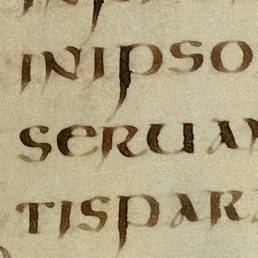 IN IPSO
SERUAN
TIS PARA